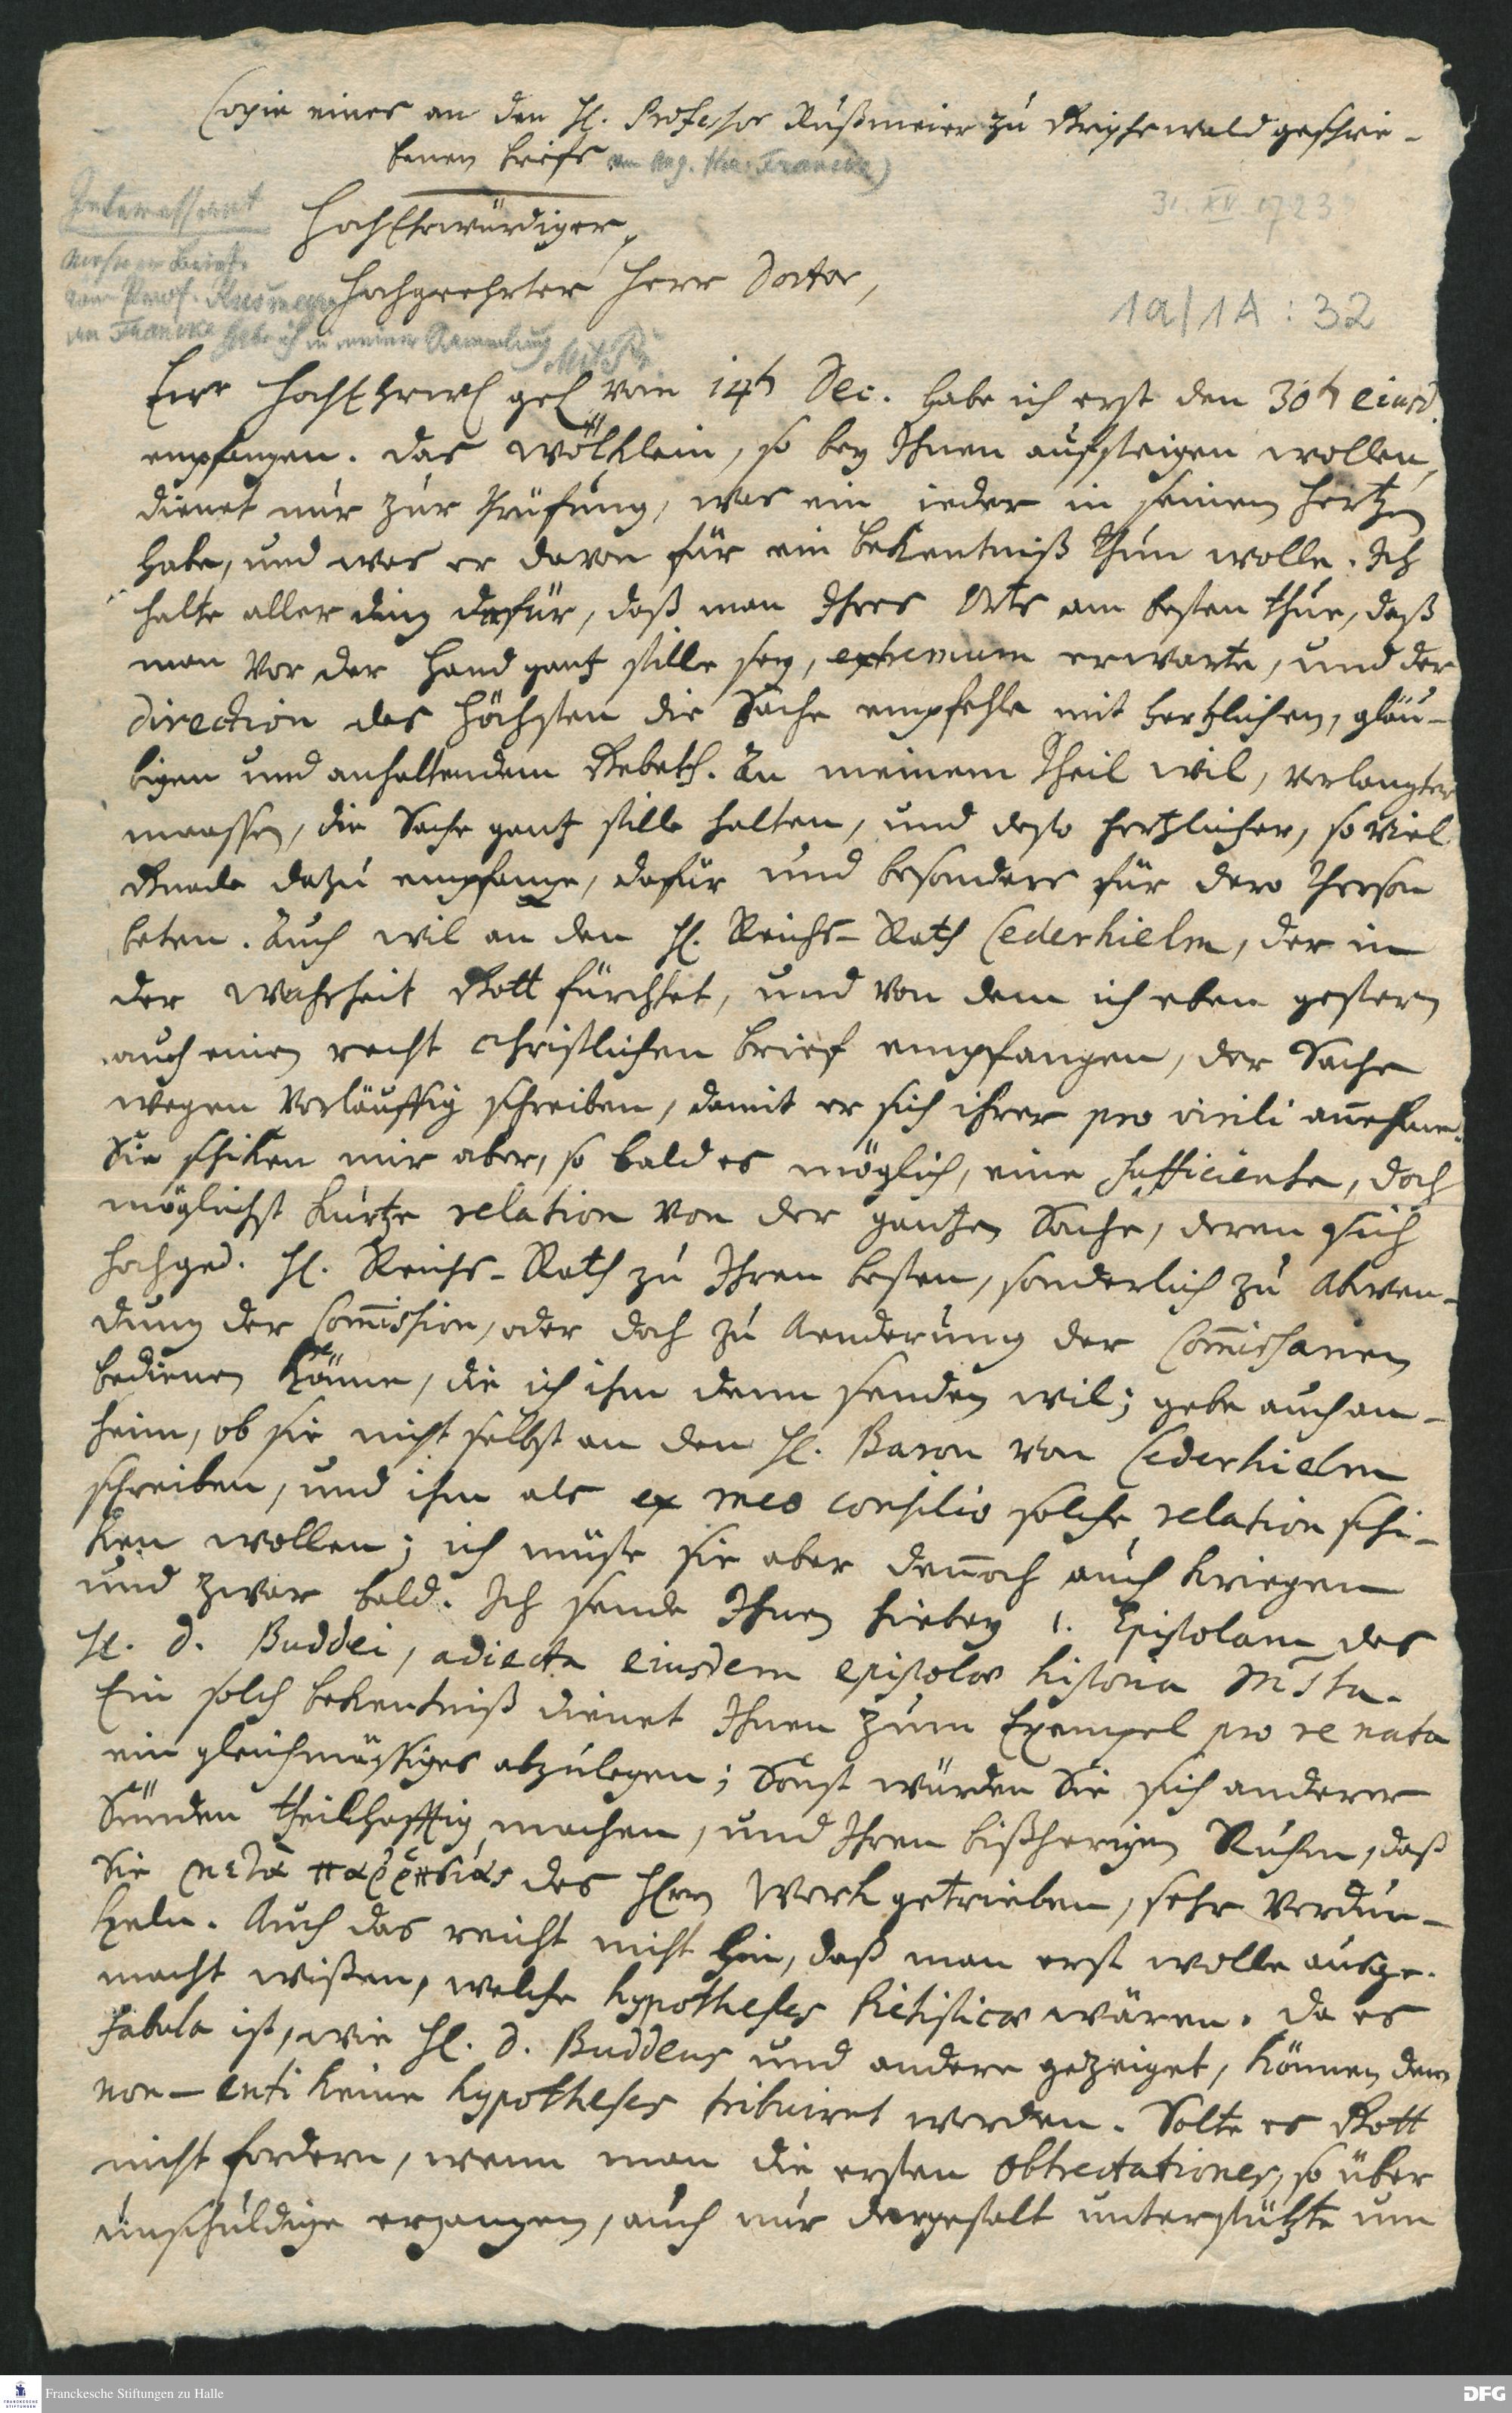 Copie eines an den H. Professor Rußmeier zu Greiphswald geschrie-
benen briefs von Aug. Her. Francke)
31. XII 1723
Interessant
mehrere Briefe
von Prof. Rusmeyer
an Francke habe ich in meiner Sammlung
HochEhrwürdiger,
Hochgeehrter Herr Doctor,
1a/1A : 32
Ewr HochEhrw gel vom 14t Dec. habe ich erst den 30t eiusd.
empfangen. Das wölklein, so bey Ihnen aufsteigen wollen,
dienet nur zur Prüfung, was ein ieder in seinem Hertzen
habe, und was er davon für ein bekentniß thun wolle. Ich
halte aller ding dafür, daß man Ihres Orts am besten thue, daß
man vor der Hand gantz stille sey, extremum erwarte, und der
direction des Höchsten die Sache empfehle mit hertzlichen, gläu-
bigen und anhaltendem Gebeth. An meinem Theil wil, verlangter
maassen, die Sache gantz stille halten, und desto hertzlicher, so viel
Gnade dazu empfange, dafür und besonders für dero Person
beten. Auch wil an den H. Reichs-Rath Cederhielm, der in
der Wahrheit Gott fürchtet, und von dem ich eben gestern
auch einen recht Christlichen brief empfangen, der Sache
wegen vorläuffig schreiben, damit er sich ihrer pro virili annehme.
Sie schiken mir aber, so bald es möglich, eine sufficiente, doch
möglichst kurtze relation von der gantzen Sache, deren sich
hochged. H. Reichs-Rath zu Ihren besten, sonderlich zu Abwen-
dung der Commission, oder doch zu Aenderung der Commissarien
bedienen könne, die ich ihm denn senden wil; gebe auch an-
heim, ob sie nicht selbst an den H. Baron von Cederhielm
schreiben, und ihm als ex meo consilio solche relation schi-
ken wollen; ich müste sie aber dennoch auch kriegen
und zwar bald. Ich sende Ihnen hiebey 1. Epistolam des
H. D. Buddei, adiecta eiusdem epistolae historia MSta.
Ein solch bekentniß dienet Ihnen zum Exempel pro re nata
ein gleichmässiges abzulegen; Sonst würden Sie sich anderer
Sünden theilhafftig machen, und Ihren bißherigen Ruhm, daß
Sie μετὰ παῤῥησίας des HErrn Werk getrieben, sehr verdun-
keln. Auch das reicht nicht hin, daß man erst wolle ausge-
macht wißen, welche hypotheses Pietisticae wären. Da es
Fabula ist, wie H. D. Buddeus und andere gezeiget, können dem
non-enti keine hypotheses tribuiret werden. Solte es Gott
nicht fordern, wenn man die ersten obtrectationes, so über
unschuldige ergangen, auch nur dergestalt unterstützte um
Franckesche Stiftungen zu Halle
DFG